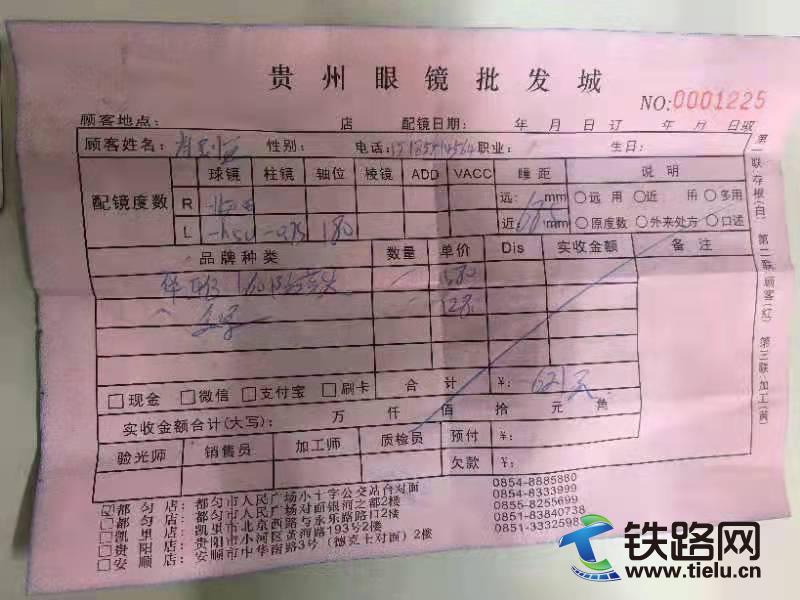 贵州眼镜批发城
NO:0001225
顾客地点: 店 配镜日期: 年 月 日 订 年 月 日取
顾客姓名: 性别: 电话: 职业: 生日:
配镜度数 球镜 柱镜 轴位 棱镜 ADD VACC 瞳距 说明
R 远: mm ○远用 ○近用 ○多用
L -0.75 180 近 mm ○原度数 ○外来处方 ○口述
品牌种类 数量 单价 Dis 实收金额 备注
□现金 □微信 □支付宝 □刷卡 合计 ¥:
实收金额合计(大写): 万 仟 佰 拾 元 角
验光师 销售员 加工师 质检员 预付 ¥:
欠款 ¥:
都匀店: 都匀市人民广场小十字公交站台对面 0854-8885880
□都匀店: 都匀市人民广场对面银河之都2楼 0854-8333999
□凯里店: 凯里市北京西路与永乐路路口2楼 0855-8255699
□贵阳店: 贵阳市小河区黄河路193号2楼 0851-83840738
□安顺店: 安顺市中华南路3号(德克士对面)2楼 0851-3332598
第一联:存根(白) 第二联:顾客(红) 第三联:加工(黄)
铁路网
www.tielu.cn